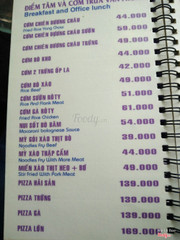 ĐIỂM TÂM VÀ CƠM TRƯA VĂN
Breakfast and Office lunch
CƠM CHIÊN DƯƠNG CHÂU 44.000
Fried Rice Yang Chow
CƠM CHIÊN DƯƠNG CHÂU 59.000
CƠM CHIÊN DƯƠNG CHÂU TRỨNG 49.000
CƠM BÒ KHO 44.000
CƠM 2 TRỨNG ỐP LA 42.000
CƠM BÒ XÀO 49.000
CƠM SƯỜN NƯỚNG 61.000
CƠM GÀ NƯỚNG 61.000
Fried Rice Chicken
NUI SỐT BÒ BẰM 54.000
Macaroni bolognese Sauce
MỲ GÓI XÀO THỊT BÒ 39.000
Noodles fry With Meat
MỲ XÀO THẬP CẨM 44.000
Noodles fry With More Meat
MIẾN XÀO THỊT HEO + BÒ 49.000
Stir Fried With Pork Meat
PIZZA HẢI SẢN 139.000
PIZZA TRỨNG 139.000
PIZZA GÀ 139.000
PIZZA LỚN 169.000